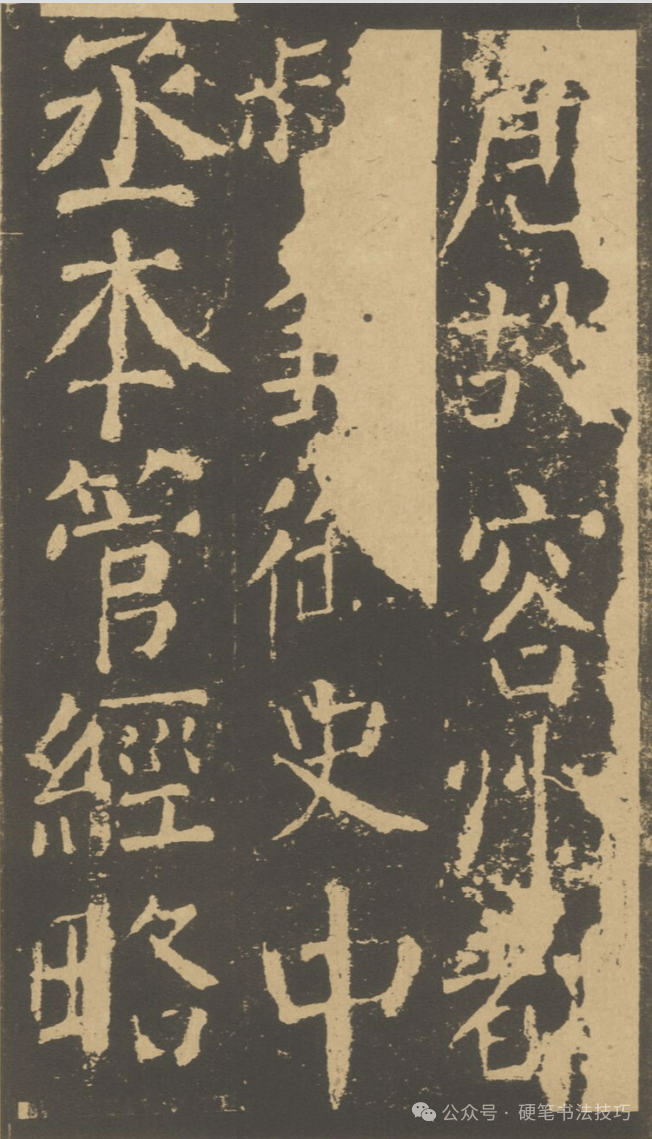 唐故容州都
御史中
丞本管經略
公众号 · 硬笔书法技巧